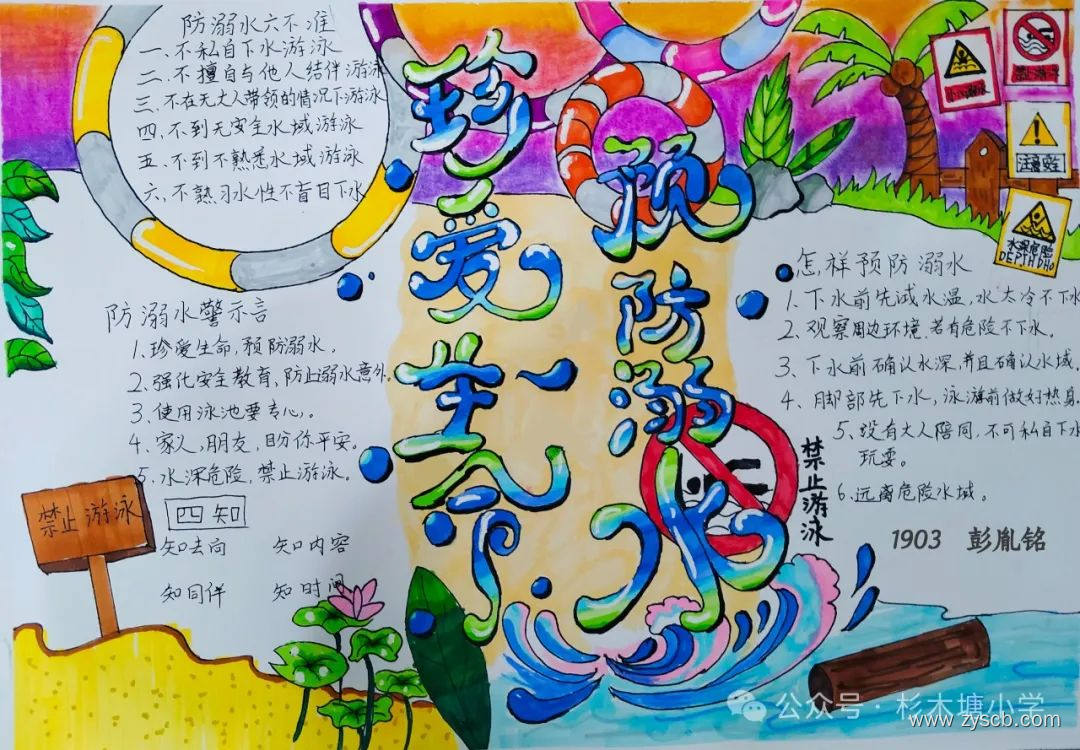 防溺水六不准
一、不私自下水游泳
二、不擅自与他人结伴游泳
三、不在无大人带领的情况下游泳
四、不到无安全水域游泳
五、不到不熟悉水域游泳
六、不熟习水性不盲目下水
珍爱生命
预防溺水
防溺水警示言
1、珍爱生命，预防溺水。
2、强化安全教育、防止溺水意外。
3、使用泳池要专心。
4、家人，朋友，盼你平安。
5、水深危险，禁止游泳。
禁止游泳
四知
知去向 知内容
知同伴 知时间
注意安全
水深危险
怎样预防溺水
1、下水前先试水温，水太冷不下水
2、观察周边环境，若有危险不下水。
3、下水前确认水深，并且确认水域。
4、脚部先下水，泳游前做好热身
5、没有大人陪同，不可私自下水
玩耍。
6、远离危险水域。
禁止游泳
1903 彭胤铭
公众号·杉木塘小学
www.zyscb.com